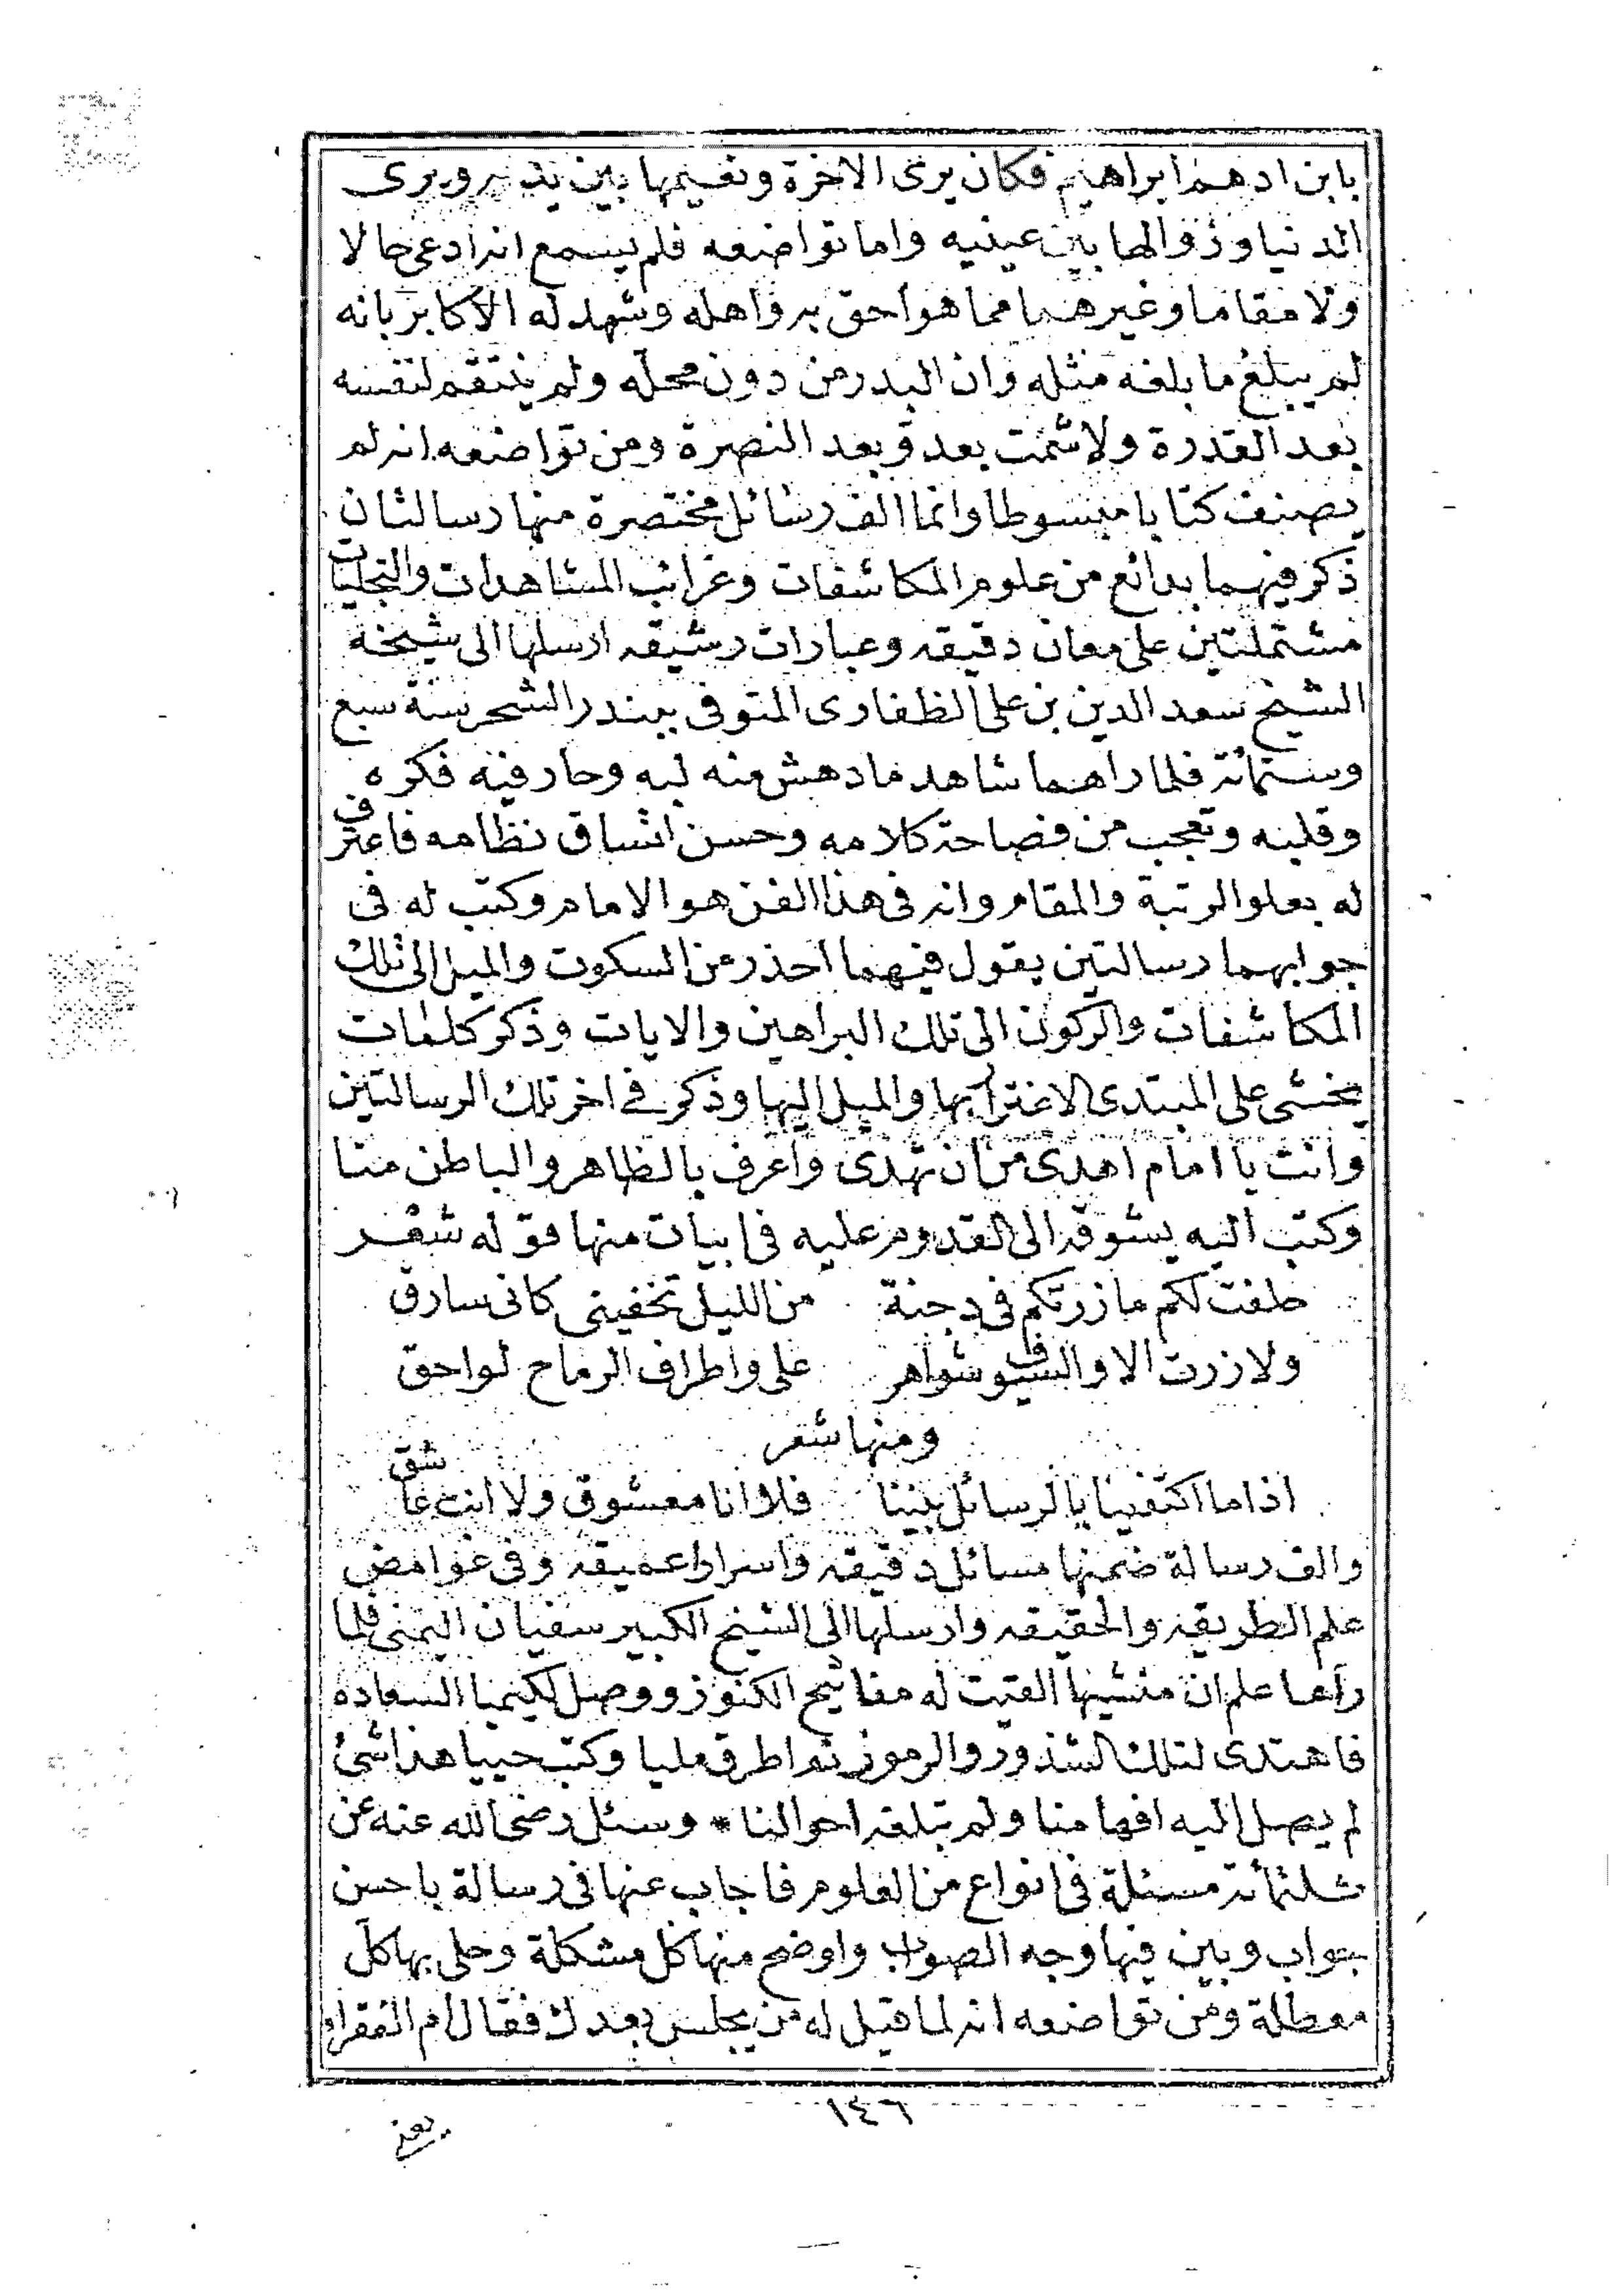 بابن ادهم ابراهيم فكان يرى الاخرة ونعيمها بين يديه ويرى
الدنيا وزوالها بين عينيه واما تواضعه فلم يسمع انه ادعى حالا
ولا مقاما وغيرهما مما هو احق به واهله وشهد له الاكابر بانه
لم يبلغ ما بلغه مثله وان البدر من دون محله ولم ينتقم لنفسه
بعد القدرة ولا شمت بعدو بعد النصرة ومن تواضعه انه لم
يصنف كتابا مبسوطا وانما الف رسائل مختصرة منها رسالتان
ذكر فيهما بدائع من علوم المكاشفات وغرائب المشاهدات والتجليات
مشتملتين على معان دقيقه وعبارات رشيقه ارسلها الى شيخه
الشيخ سعد الدين بن على الظفارى المتوفى ببندر الشحر سنة سبع
وستمائة فلما راهما شاهد ما دهش منه لبه وحار فيه فكره
وقلبه وتعجب من فصاحة كلامه وحسن اتساق نظامه فاعترف
له بعلو الرتبة والمقام وانه فى هذا الفن هو الامام وكتب له فى
جوابهما رسالتين يقول فيهما احذر من السكوت والميل الى تلك
المكاشفات والركون الى تلك البراهين والايات وذكر كلمات
يخشى على المبتدى الاغترار بها والميل اليها وذكر في اخر تلك الرسالتين
وانت يا امام اهدى من ان تهدى واعرف بالظاهر والباطن منا
وكتب اليه يشوقه الى القدوم عليه فى ابيات منها قوله شعر
حلفت لكم ما زرتكم فى دجنة من الليل تخفينى كانى سارق
ولا زرت الا والسيوف شواهر على واطراف الرماح لواحق
ومنها شعر
اذا ما اكتفينا بالرسائل بيننا فلا انا معشوق ولا انت عاشق
والف رسالة ضمنها مسائل دقيقه واسرار عميقه وفى غوامض
علم الطريقه والحقيقه وارسلها الى الشيخ الكبير سفيان اليمنى فلما
راها علم ان منشيها القيت له مفاتيح الكنوز ووصل لكيميا السعاده
فاهتدى لتلك الشذور والرموز ثم اطرق مليا وكتب حييا هذا شئ
لم يصل اليه افهامنا ولم تبلغه احوالنا * وسئل رضى الله عنه عن
ثلثمائة مسئلة فى انواع من العلوم فاجاب عنها فى رسالة باحسن
جواب وبين فيها وجه الصواب واوضح منها كل مشكلة وحلى بها كل
معطلة ومن تواضعه انه لما قيل له من يجلس بعدك فقال ام الفقراء
١٤٦